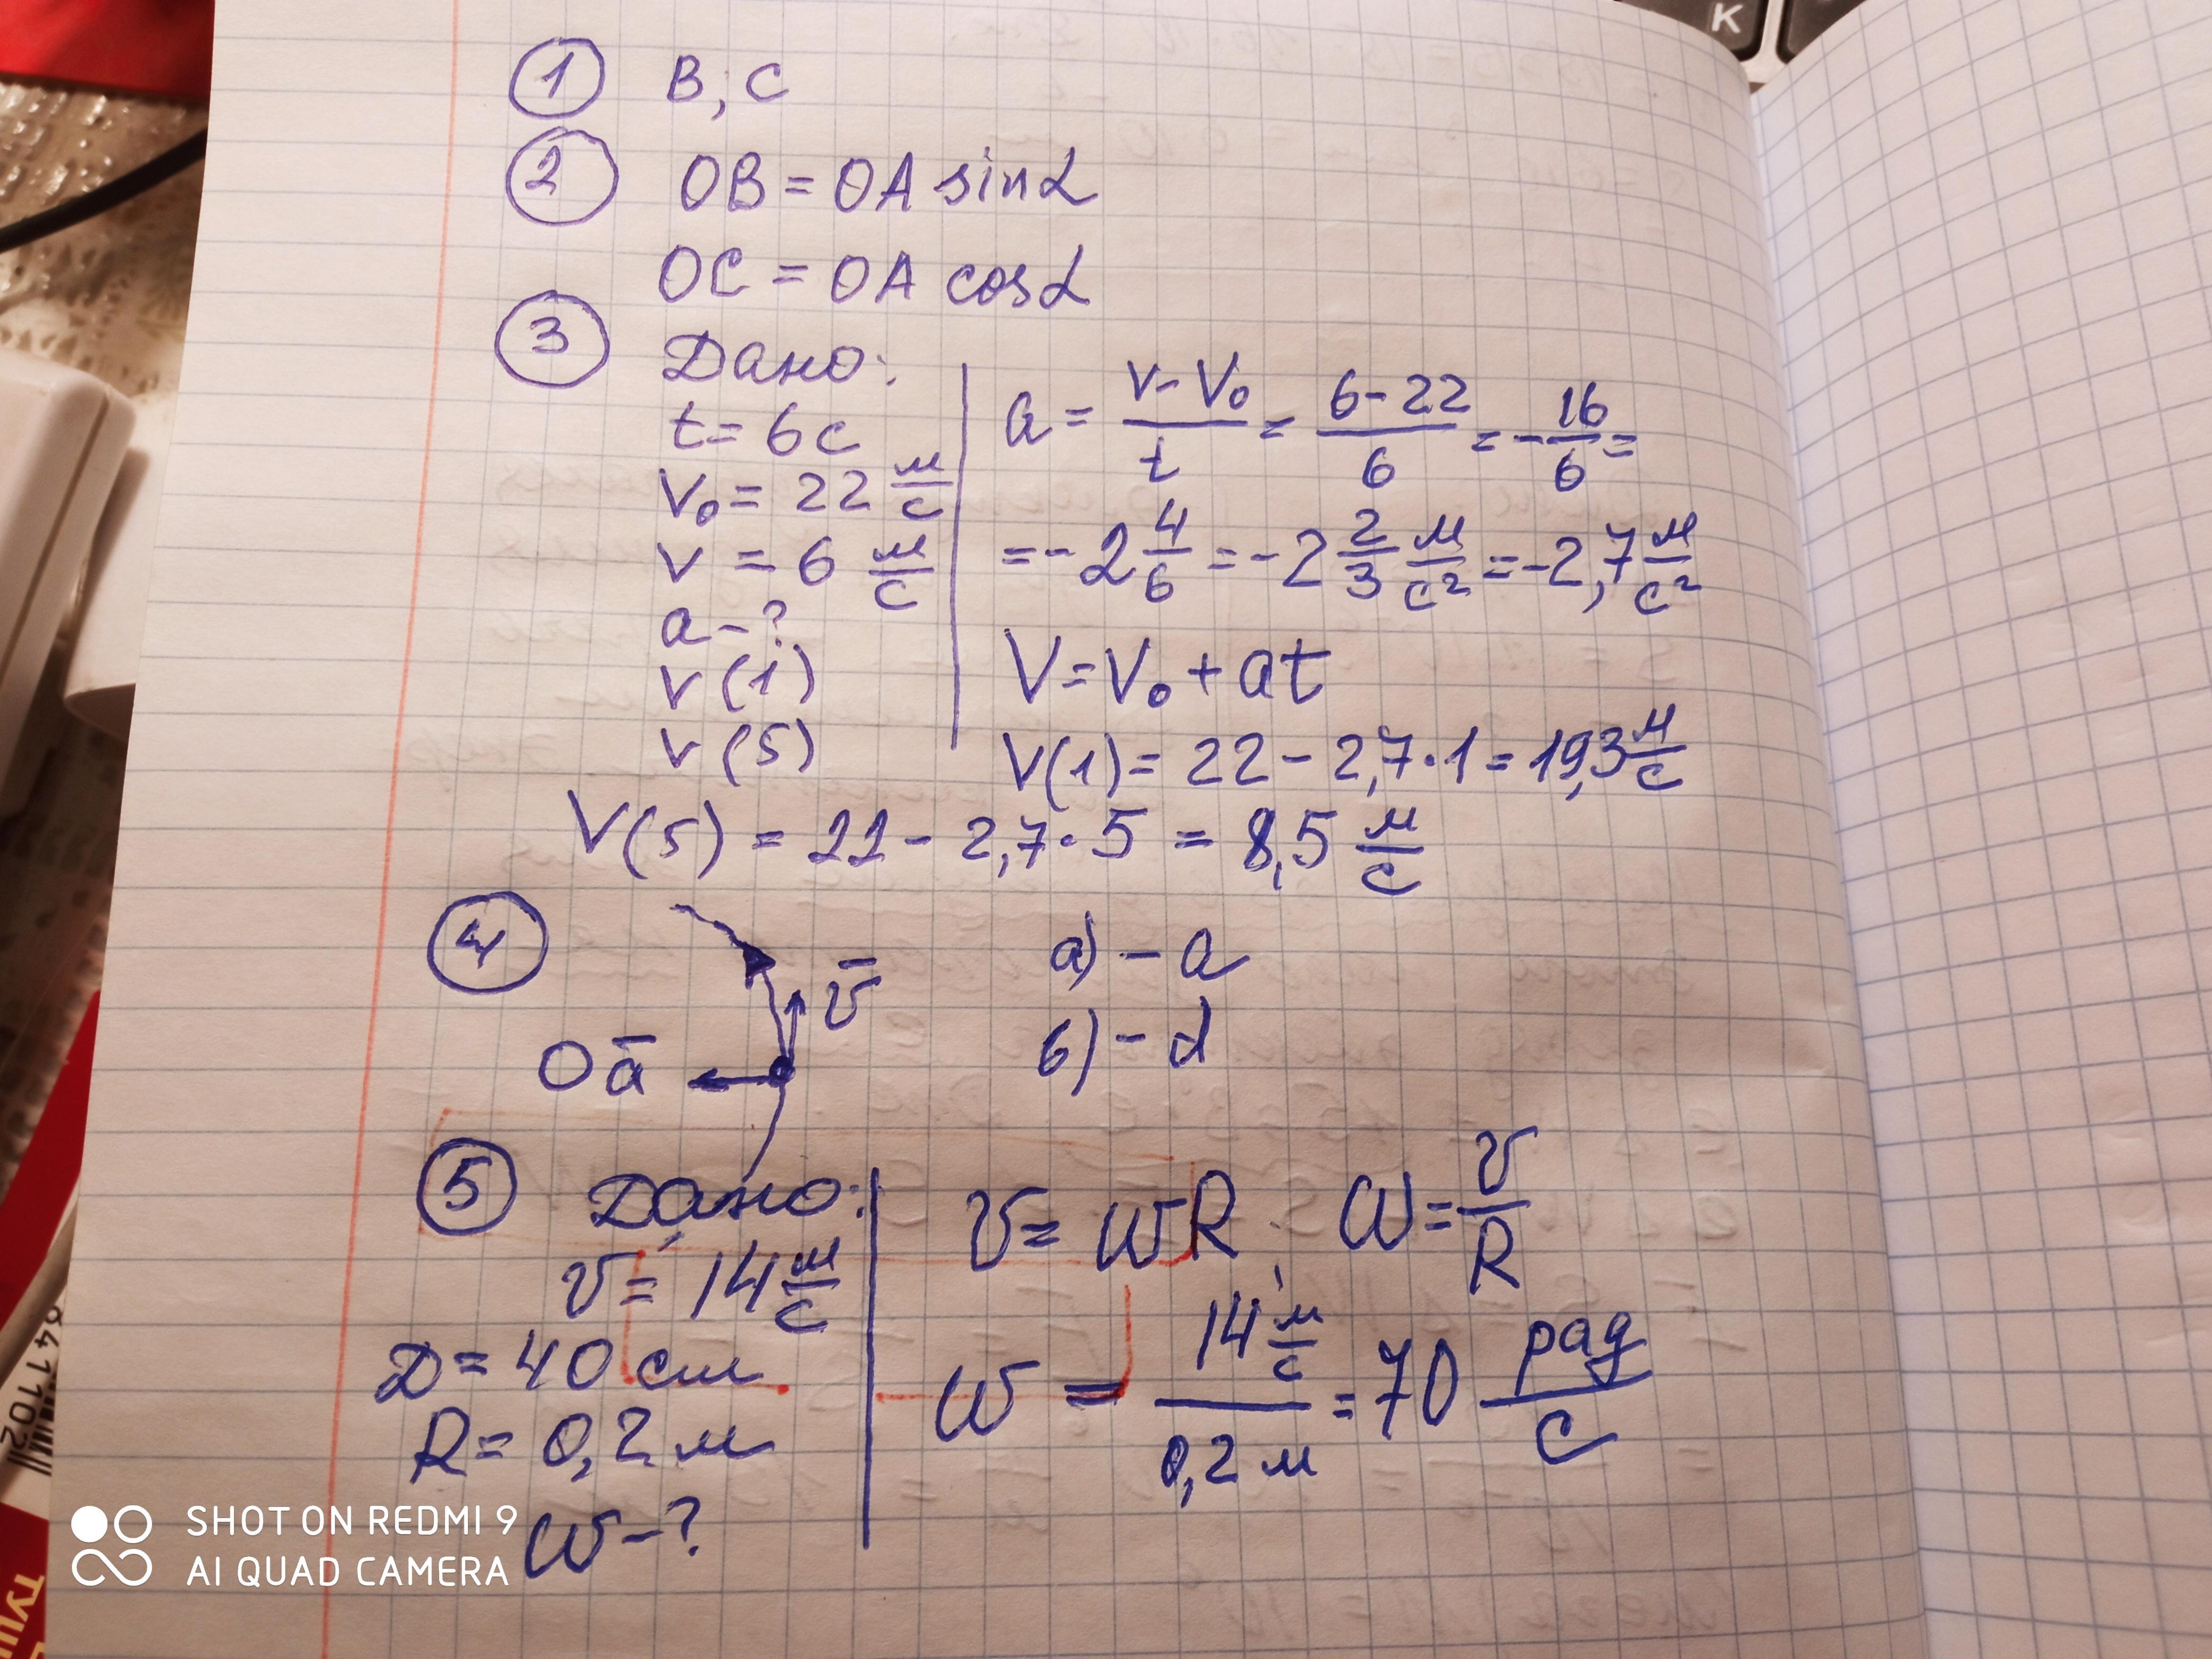 ① B, C
② OB = OA sinα
OC = OA cosα
③ Дано:
t = 6c
V₀ = 22 м/с
V = 6 м/с
a - ?
V(1)
V(5)
a = (V - V₀)/t = (6 - 22)/6 = -16/6 =
= -2 4/6 = -2 2/3 м/с² = -2,7 м/с²
V = V₀ + at
V(1) = 22 - 2,7·1 = 19,3 м/с
V(5) = 22 - 2,7·5 = 8,5 м/с
④ v̄
O ā
а) - a
б) - d
⑤ Дано:
v = 14 м/с
D = 40 см
R = 0,2 м
ω - ?
v = ωR, ω = v/R
ω = 14 м/с / 0,2 м = 70 рад/с
K
SHOT ON REDMI 9
AI QUAD CAMERA